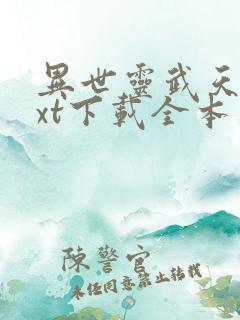 異世靈武天
xt下載全本
陳警官
未經同意禁止轉載